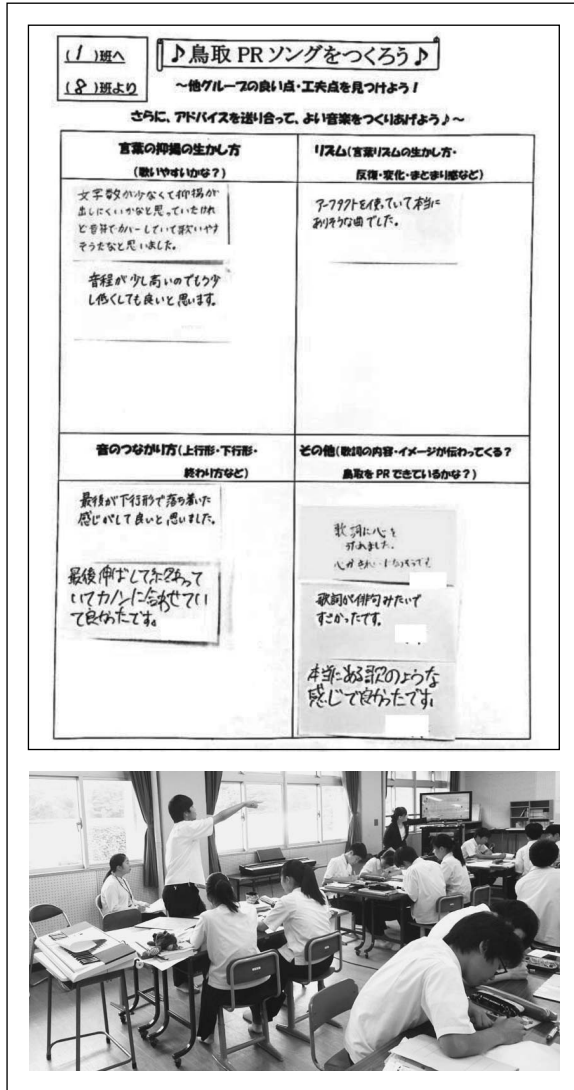 (1)班へ
(8)班より
♪鳥取PRソングをつくろう♪
～他グループの良い点・工夫点を見つけよう！
さらに、アドバイスを送り合って、よい音楽をつくりあげよう♪～
言葉の抑揚の生かし方
(歌いやすいかな？)
文字数が少なくて抑揚が
出しにくいかなと思っていたけれ
ど音符でカバーしていて歌いやす
そうだなと思いました。
音程が少し高いのでもう少
し低くしても良いと思います。
リズム(言葉リズムの生かし方・
反復・変化・まとまり感など)
アーフタクトを使っていて本当に
ありそうな曲でした。
音のつながり方(上行形・下行形・
終わり方など)
最後が下行形で落ち着いた
感じがして良いと思いました。
最後伸ばして
いてカノンに合わせてい
て良かったです。
その他(歌詞の内容・イメージが伝わってくる？
鳥取をPRできているかな？)
歌詞に心を
打たれました。
歌詞が俳句みたいで
すごかったです。
本当にある歌のような
感じで良かったです。